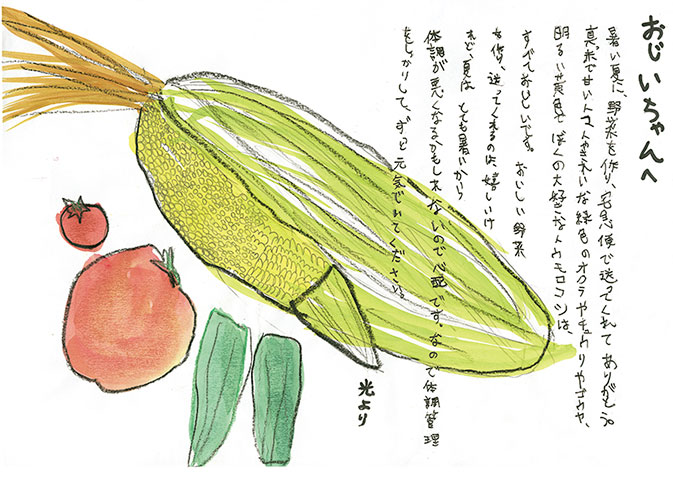 おじいちゃんへ
暑い夏に、野菜を作り、宅急便で送ってくれてありがとう。
真っ赤で甘いトマトやきれいな緑色のオクラやキュウリやゴーヤ、
明るい黄色でぼくの大好きなトウモロコシは、
すべておいしいです。おいしい野菜
を作り、送ってくれるのは、嬉しいけ
れど、夏はとても暑いから
体調が悪くなるかもしれないので心配です。なので体調管理
をしっかりして、ずっと元気でいてください。
光より